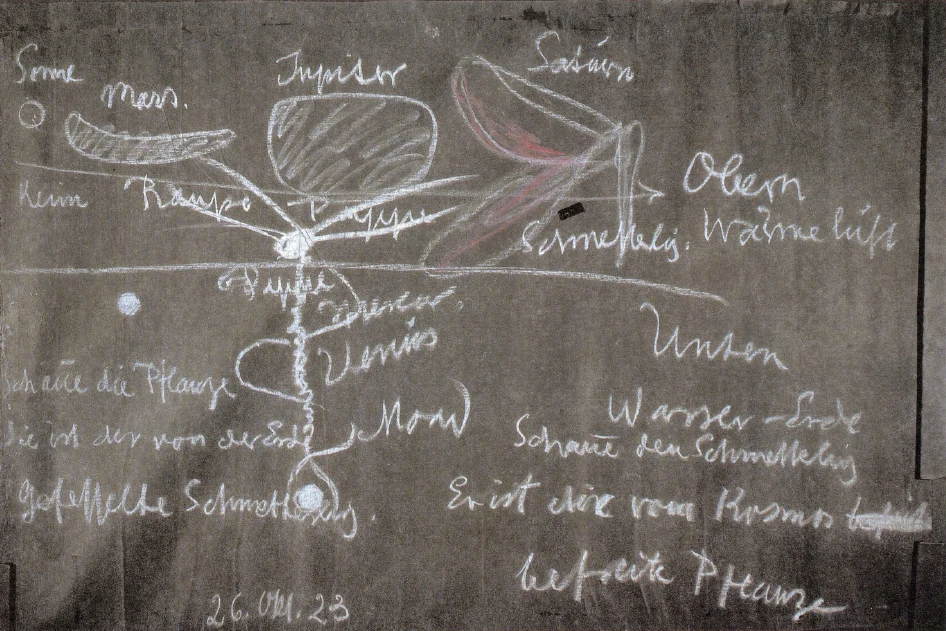 Sonne
Mars.
Jupiter
Saturn
Keim
Raupe
Puppe
Schmetterlig.
Obern
Wärme luft
Merkur.
Venus
Mond
Unten
Wasser-Erde
Schaue die Pflanze
die ist der von der Erde
gefesselte Schmetterling.
Schaue den Schmetterlig
Er ist die vom Kosmos
befreite Pflanze
26. Okt. 23